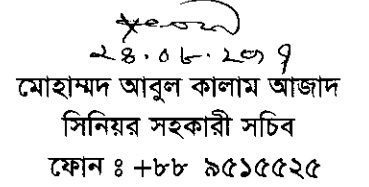 মোহাম্মদ আবুল কালাম আজাদ
সিনিয়র সহকারী সচিব
ফোন ঃ +৮৮ ৯৫১৫৫২৫